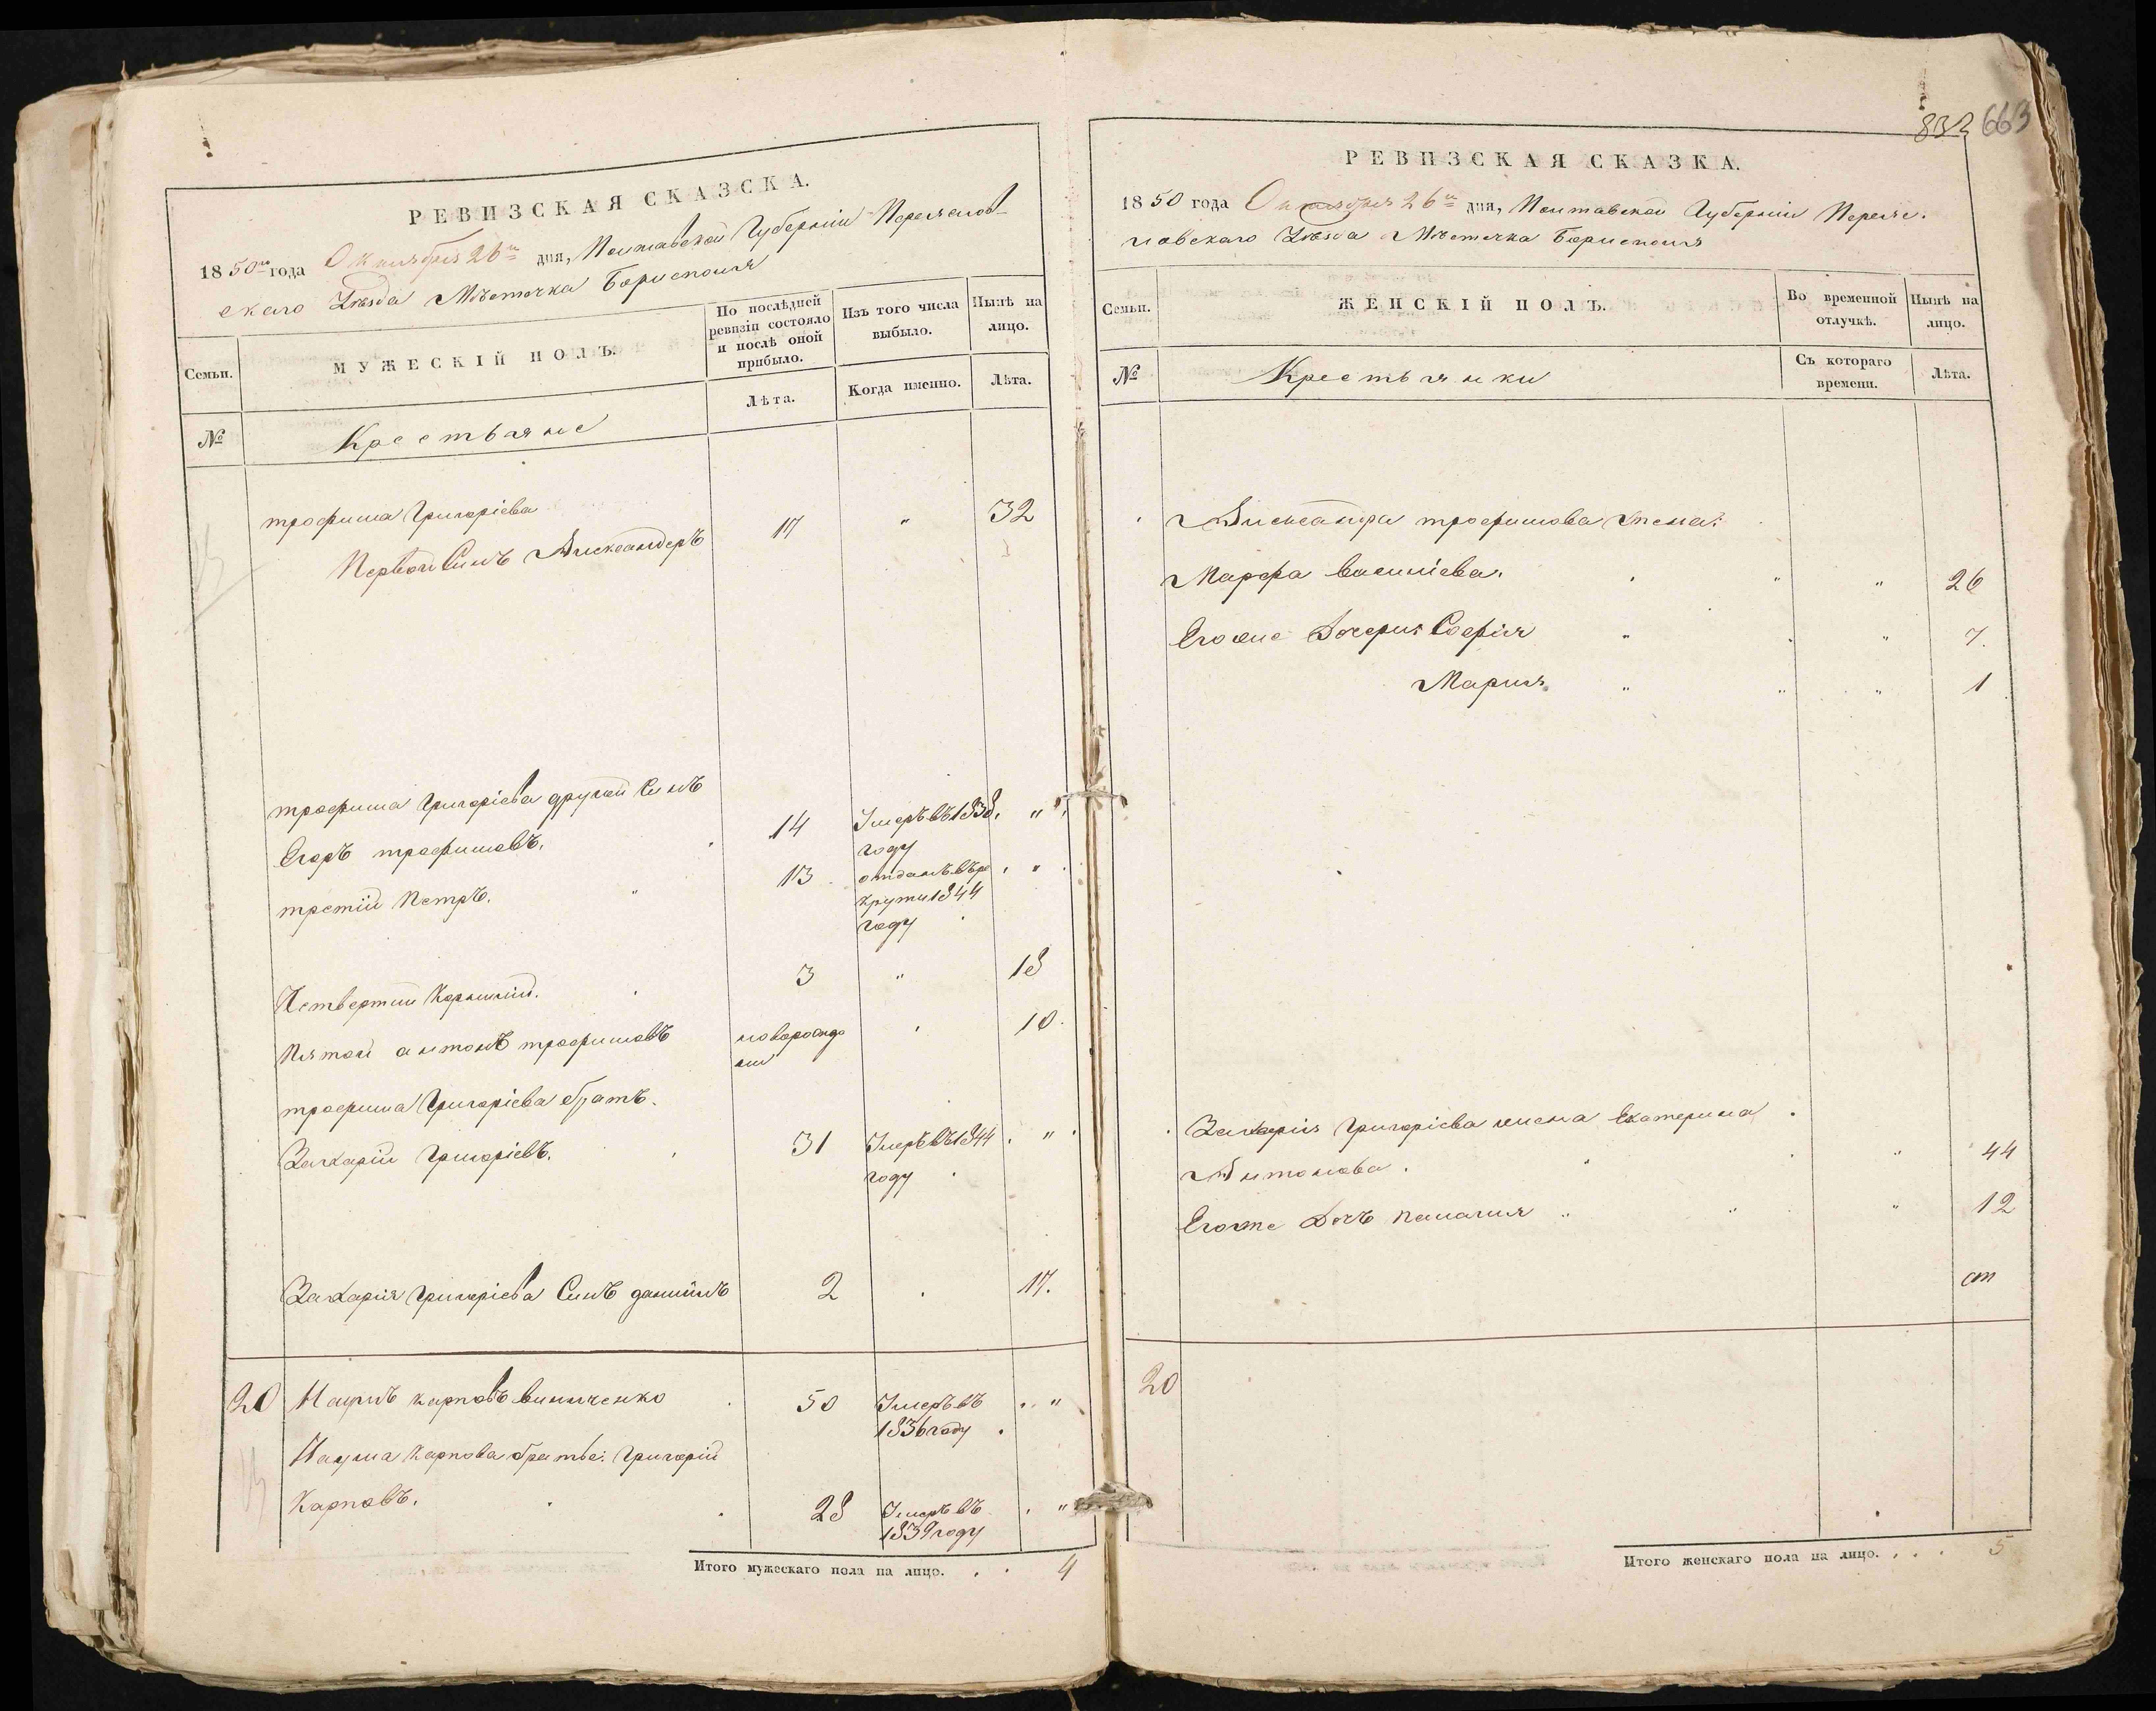 РЕВИЗСКАЯ СКАЗСКА.
1850го года Октября 26го дня, Полтавской Губерніи Переяслов-
скаго Уѣзда Мѣстечка Борисполя
Семьи.
МУЖЕСКІЙ ПОЛЪ.
По послѣдней ревизіи состояло и послѣ оной прибыло.
Изъ того числа выбыло.
Нынѣ на лицо.
№
Крестьяне
Лѣта.
Когда именно.
Лѣта.
трофима Григоріева
Первой Синъ Александеръ 17 " 32
трофима Григоріева другой Синъ
Егоръ трофимовъ. 14 Умеръ въ 1838 году "
третій Петръ. 13 отданъ въ рекрути 1844 году "
Четвертий Корнилій. 3 " 18
Пятой антонъ трофимовъ новорожде 10
трофима Григоріева братъ.
Захарій Григоріевъ. 31 Умеръ въ 1844 году "
Захарія Григоріева Синъ даниилъ 2 17.
20 Наумъ карповъ виниченко 50 Умеръ въ 1836 году "
Наума Карпова братъ: Григорій
Карповъ. 28 Умеръ въ 1839 году "
Итого мужескаго пола на лицо. . . 4
832 663
РЕВИЗСКАЯ СКАЗКА.
1850 года Октября 26го дня, Полтавской Губерніи Переяс-
ловскаго Уѣзда Мѣстечка Борисполя
Семьи.
ЖЕНСКІЙ ПОЛЪ.
Во временной отлучкѣ.
Нынѣ на лицо.
№
Крестьянки
Съ котораго времени.
Лѣта.
Александра трофимова жена:
Марфа василіева. " " 26
Егоже Дочери: Софія " " 7.
Мария " " " 1
Захарія Григоріева жена Екатерина
Антонова. " " 44
Егоже Дочъ пелагия " " " 12
20
Итого женскаго пола на лицо. . . . 5